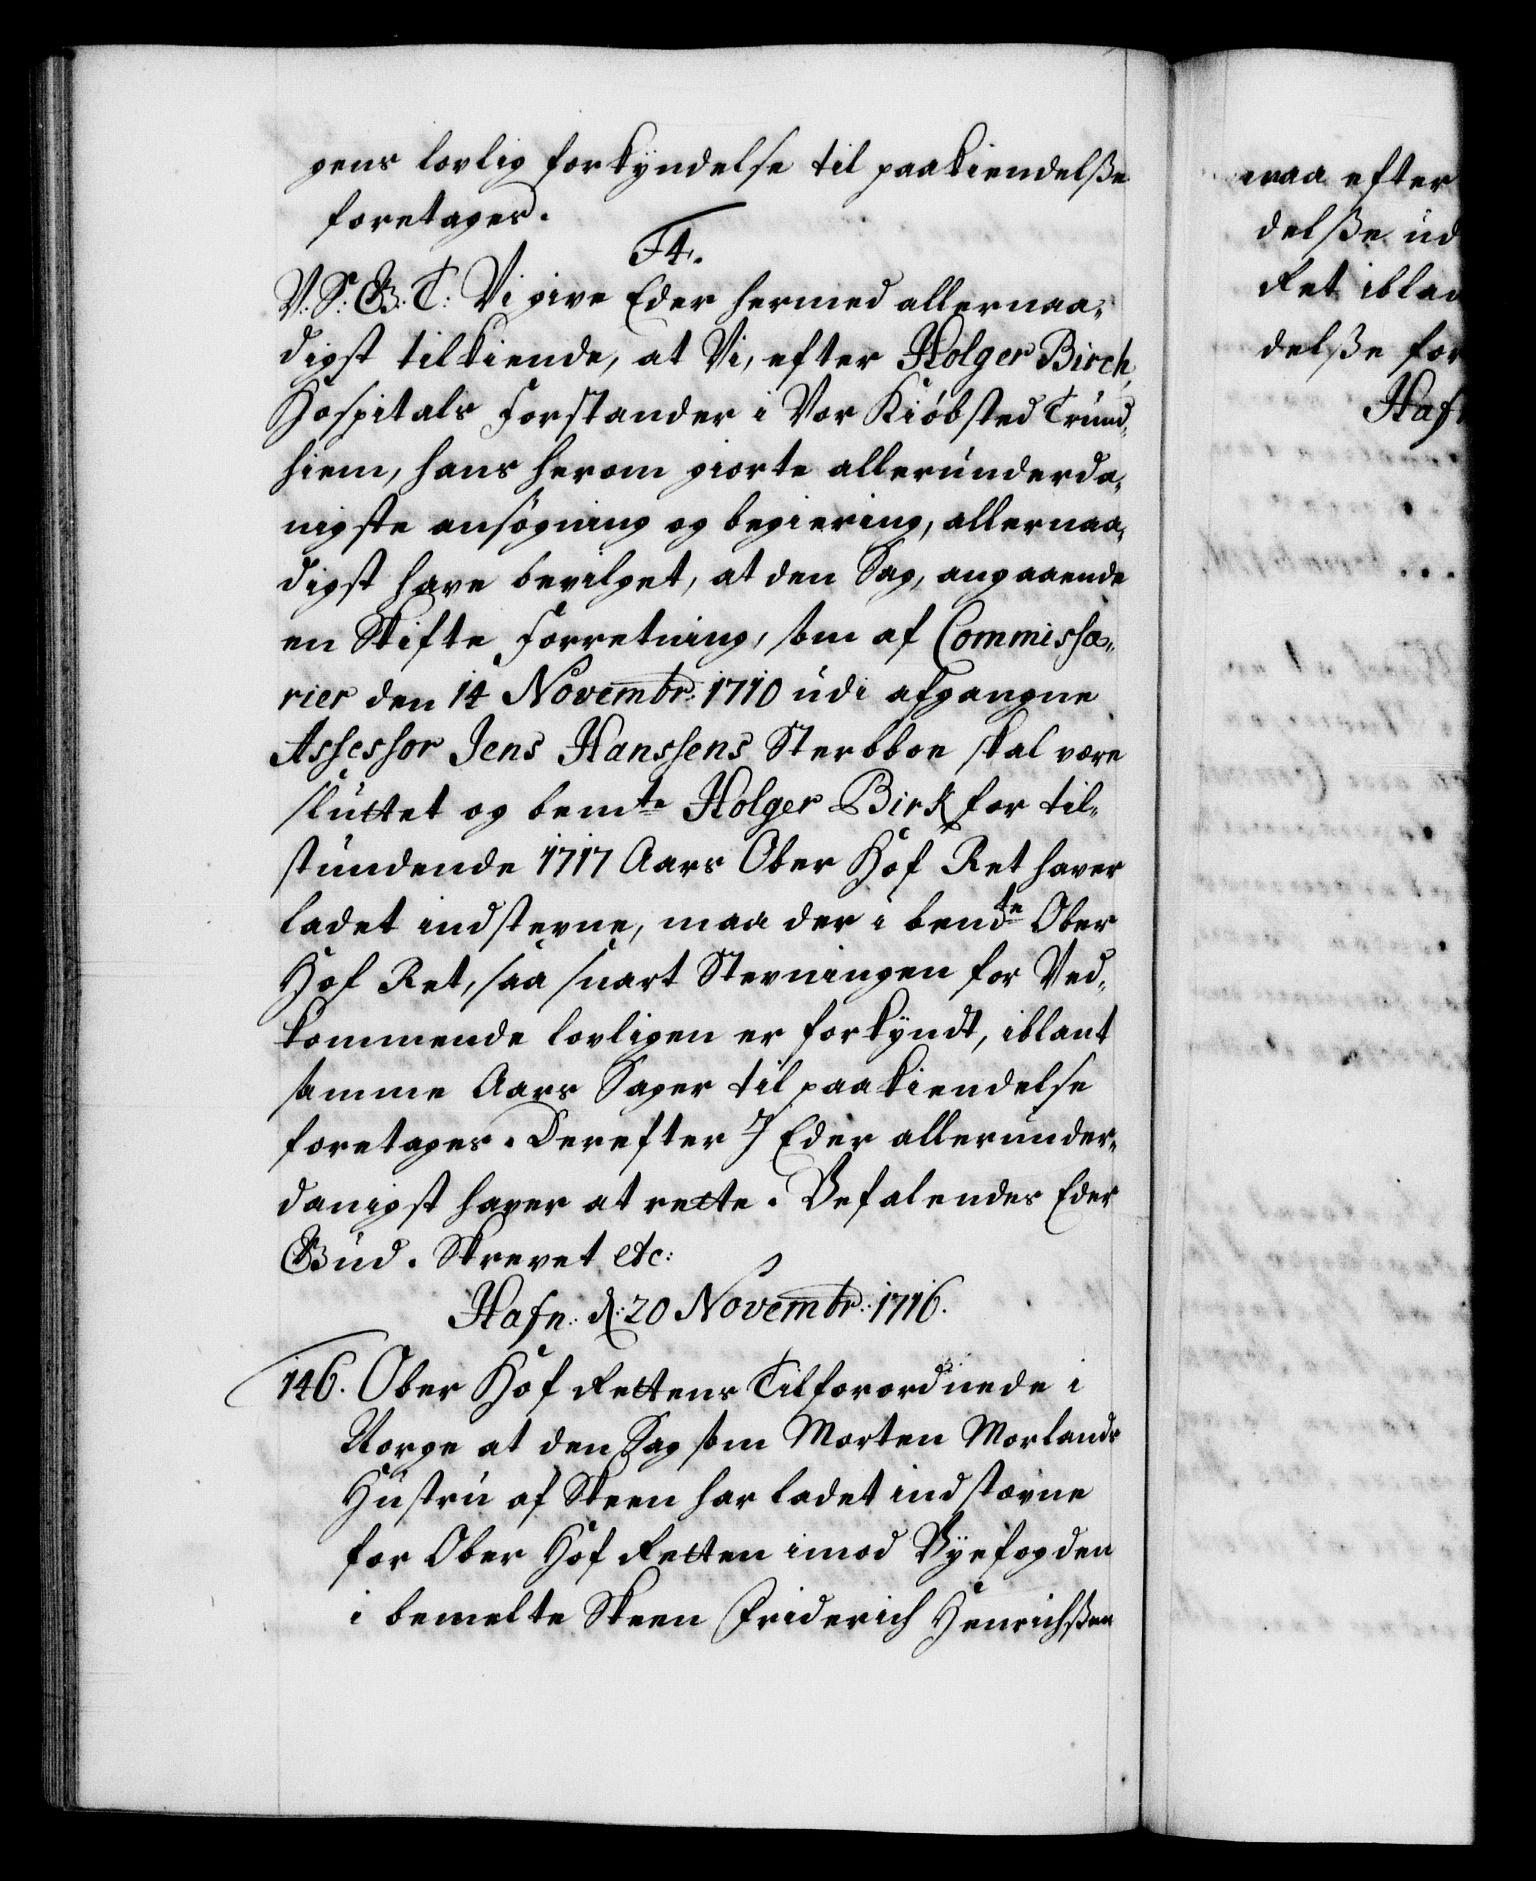 gens lovlig forkÿndelse til paakiendelße
foretages.
F4.
V: S: G: T: Vi give Eder hermed allernaa-
digst tilkiende, at Vi, efter Holger Birch,
Hospitals Forstander i Vor Kiöbsted Trund-
hiem, hans herom giorte allerunderda-
nigste ansögning og begiering, allernaa-
digst have bevilget, at den Sag, angaaende
en Skifte Forretning, som af Commissa-
rier den 14 Novembr: 1710 udi afgangne
Assessor Jens Hanssens Sterbboe skal være
sluttet og bemte Holger Birk for til-
stundende 1717 Aars Ober Hof Ret haver
ladet indstevne, maa der i bendte Ober
Hof Ret, saa snart Stevningen for Ved-
kommende lovligen er forkÿndt, iblant
samme Aars Sager til paakiendelse
foretages. Derefter I Eder allerunder-
danigst haver at rette. Befalendes Eder
Gud. Skrevet etc:
Hafn: d: 20 Novembr: 1716.
146. Ober Hof Rettens Tilforordnede i
Norge at den Sag som Morten Morlands
Hustru af Skeen har ladet indstævne
for Ober Hof Retten imod Bÿefogden
i bemelte Skeen Friderich Henrichßen
efter
delße ud
Ret iblan
delße for
Hafn